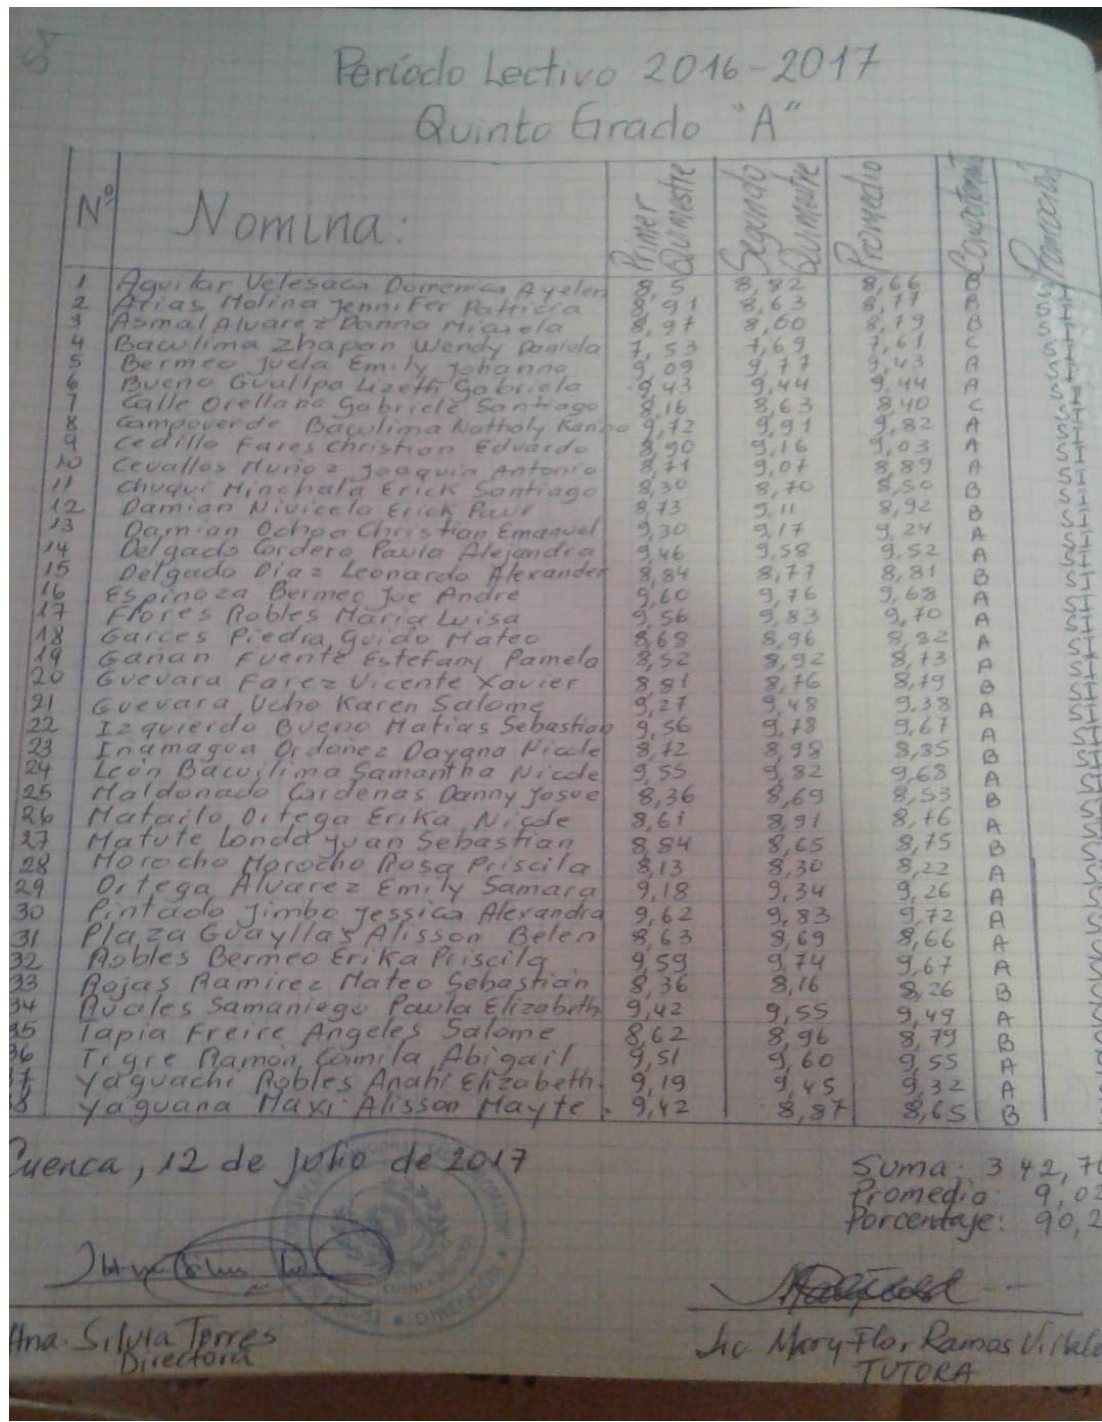 Período Lectivo 2016-2017
Quinto Grado "A"
Nº Nomina: Primer Quimestre Segundo Quimestre Promedio Promoción
1 Aguilar Velesaca Domenica Ayelen 8,5 8,82 8,66 B SI
2 Arias Molina Jennifer Patricia 8,91 8,63 8,77 SI
3 Asmal Alvarez Danna Micaela 8,97 8,60 8,79 B SI
4 Baculima Zhapan Wendy Daniela 7,53 7,69 7,61 C SI
5 Bermeo Juela Emily Johanna 9,09 9,77 9,43 A SI
6 Bueno Guallpa Lizeth Gabriela 9,43 9,44 9,44 A SI
7 Calle Orellana Gabriele Santiago 8,16 8,63 8,40 C SI
8 Campoverde Baculima Natholy Karina 9,72 9,91 9,82 A SI
9 Cedillo Fares Christian Eduardo 8,90 9,16 9,03 A SI
10 Cevallos Muñoz Joaquin Antonio 8,71 9,07 8,89 A SI
11 Chuqui Minchala Erick Santiago 8,30 8,70 8,50 B SI
12 Damian Nivicela Erick Paul 8,73 9,11 8,92 B SI
13 Damian Ochoa Christian Emanuel 9,30 9,17 9,24 A SI
14 Delgado Cordero Paula Alejandra 9,46 9,58 9,52 A SI
15 Delgado Diaz Leonardo Alexander 8,84 8,77 8,81 B SI
16 Espinoza Bermeo Joe Andre 9,60 9,76 9,68 A SI
17 Flores Robles Maria Luisa 9,56 9,83 9,70 A SI
18 Garces Piedra Guido Mateo 8,68 8,96 8,82 A SI
19 Gañan Fuente Estefany Pamela 8,52 8,92 8,73 A SI
20 Guevara Farez Vicente Xavier 8,81 8,76 8,79 B SI
21 Guevara Ucho Karen Salome 9,27 9,48 9,38 A SI
22 Izquierdo Bueno Matias Sebastian 9,56 9,78 9,67 A SI
23 Inamagua Ordonez Dayana Nicole 8,72 8,98 8,85 B SI
24 León Bacuilima Samantha Nicole 9,55 9,82 9,68 A SI
25 Maldonado Cardenas Danny Josue 8,36 8,69 8,53 B
26 Matailo Ortega Erika Nicole 8,61 8,91 8,76 A
27 Matute Londa Juan Sebastian 8,84 8,65 8,75 B
28 Morocho Morocho Rosa Priscila 8,13 8,30 8,22 A
29 Ortega Alvarez Emily Samara 9,18 9,34 9,26 A
30 Pintado Jimbo Jessica Alexandra 9,62 9,83 9,72 A
31 Plaza Guayllas Alisson Belen 8,63 8,69 8,66 A
32 Robles Bermeo Erika Priscila 9,59 9,74 9,67 A
33 Rojas Ramirez Mateo Sebastian 8,36 8,16 8,26 B
34 Samaniego Paula Elizabeth 9,42 9,55 9,49 A
35 Tapia Freire Angeles Salome 8,62 8,96 8,79 B
36 Tigre Ramón Camila Abigail 9,51 9,60 9,55 A
7 Yaguachi Robles Anahi Elizabeth. 9,19 9,45 9,32 A
8 Yaguana Maxi Alisson Mayte. 9,42 8,87 8,65 B
Cuenca, 12 de julio de 2017
Suma: 342,70
Promedio: 9,02
Porcentaje: 90,2
DIRECCIÓN
Ana Silvia Torres
Directora
Lic Mary Flor Ramos
TUTORA